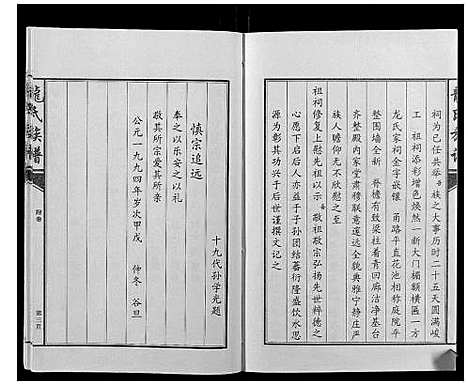 龍氏族譜
祠为己任共举族之大事历时二十五天圆满峻
工 祖祠添彩增色焕然一新大门楣额横匾一方
龙氏家祠金字嵌镶 甬路平直花池相称庭院平
整围墙全新 脊檐有致梁柱着青回廊洁净基台
齐整殿内家堂肃穆联意邃远全貌典雅宁静庄严
族人瞻仰无不欣慰之至
祖祠修复上慰先祖以示 敬祖敬宗弘扬先世粹德之
心愿下启后人亦益于子孙团结蕃衍隆盛饮水思
源为彰其功兴于后世谨撰文记之
慎宗追远
奉之以乐安之以礼
敬其所宗爱其所亲
公元一九九四年岁次甲戌 仲冬 谷旦
十九代孙学光题
龍氏族譜
附卷
第三页